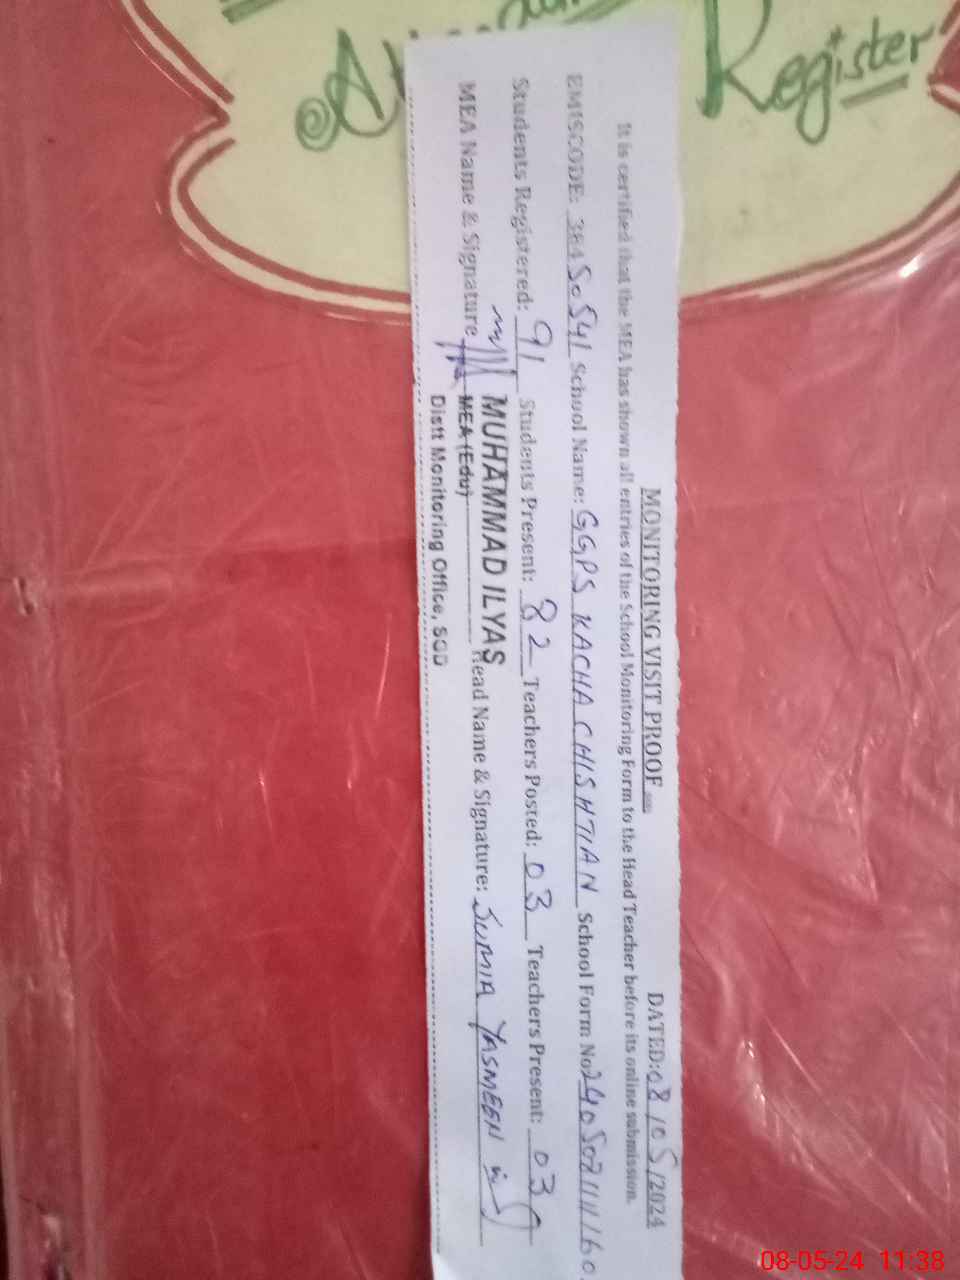 Register
MONITORING VISIT PROOF
DATED: 08/05/2024
It is certified that the MEA has shown all entries of the School Monitoring Form to the Head Teacher before its online submission.
EMISCODE: 38450541 School Name: GGPS KACHA CHISHTIAN School Form No
Students Registered: 91 Students Present: 82 Teachers Posted: 03 Teachers Present: 03
MEA Name & Signature MUHAMMAD ILYAS Head Name & Signature: SUMIA YASMEEN
MEA (Edu)
Distt Monitoring Office, SGD
08-05-24 11:38